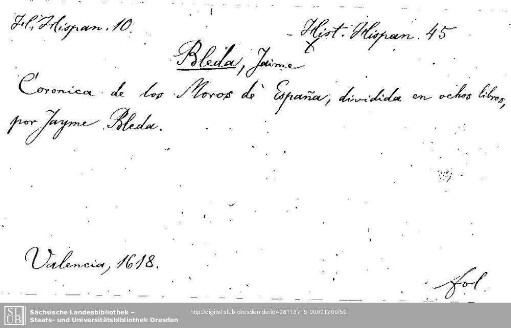 H. Hispan. 10.
Hist. Hispan. 45
Bleda, Jaime
Coronica de los Moros de España, dividida en ochos libros,
por Jayme Bleda.
Valencia, 1618.
fol
SLUB
Sächsische Landesbibliothek –
Staats- und Universitätsbibliothek Dresden